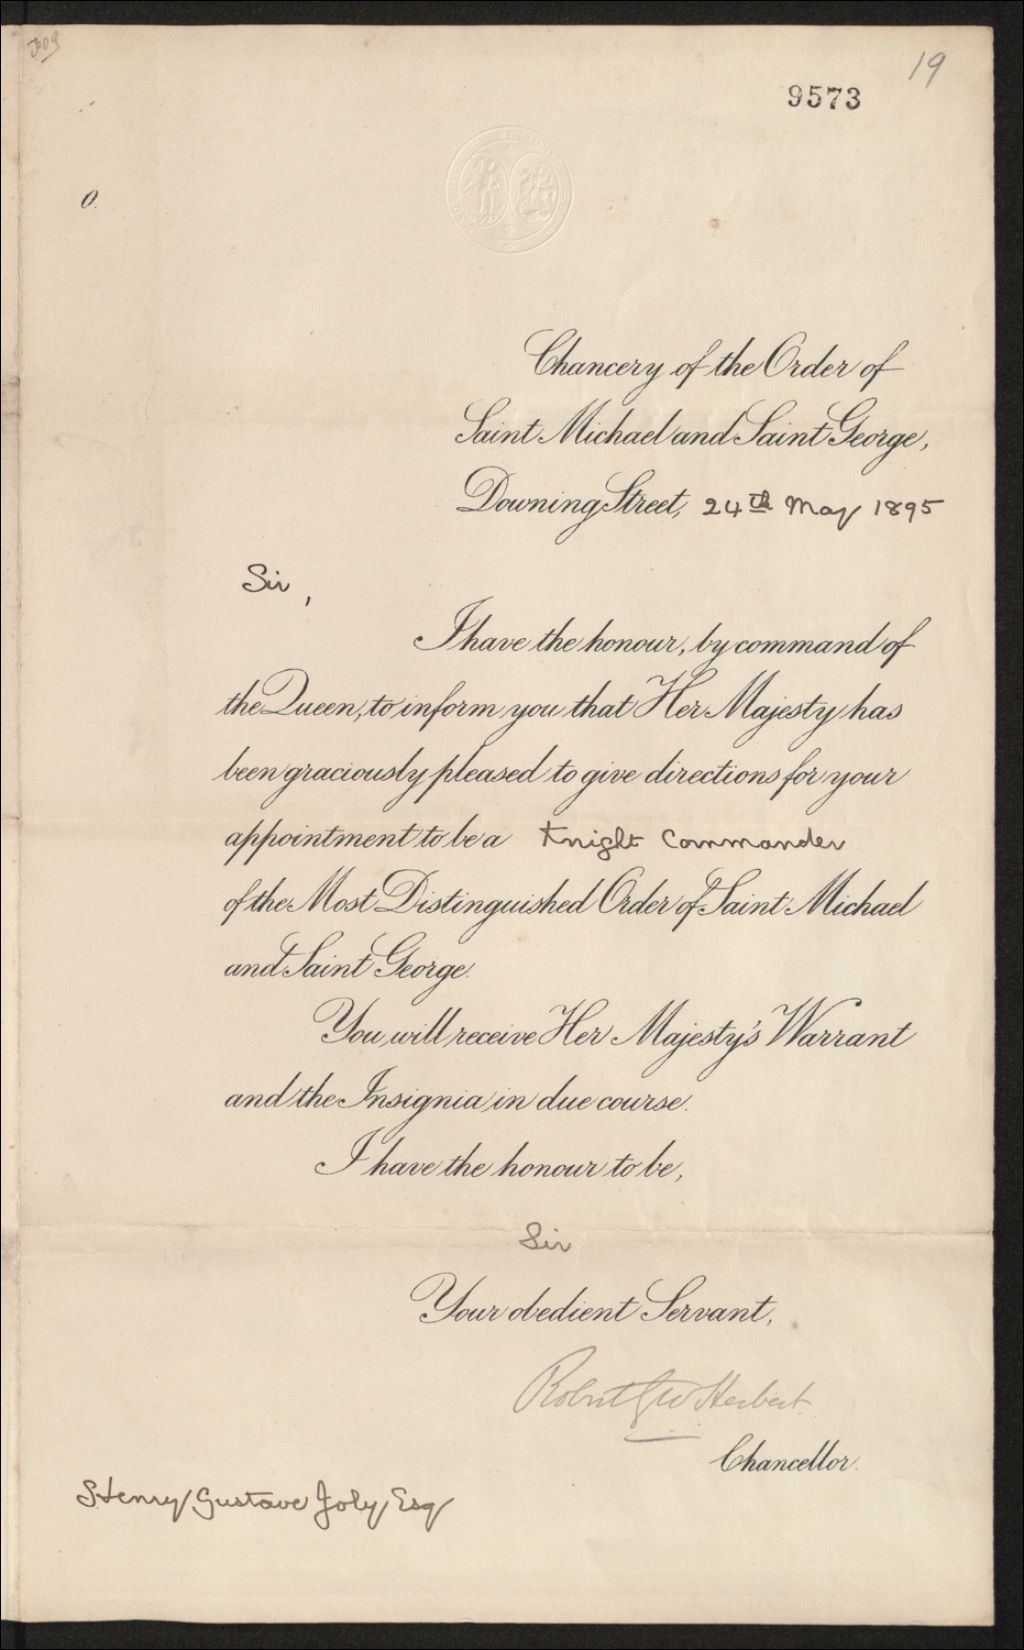 19
9573
O.
Chancery of the Order of
Saint Michael and Saint George,
Downing Street, 24th May 1895
Sir,
I have the honour, by command of
the Queen, to inform you that Her Majesty has
been graciously pleased to give directions for your
appointment to be a Knight Commander
of the Most Distinguished Order of Saint Michael
and Saint George.
You will receive Her Majesty's Warrant
and the Insignia in due course.
I have the honour to be,
Sir
Your obedient Servant,
Robert G W Herbert
Chancellor.
Henry Gustave Joly Esq